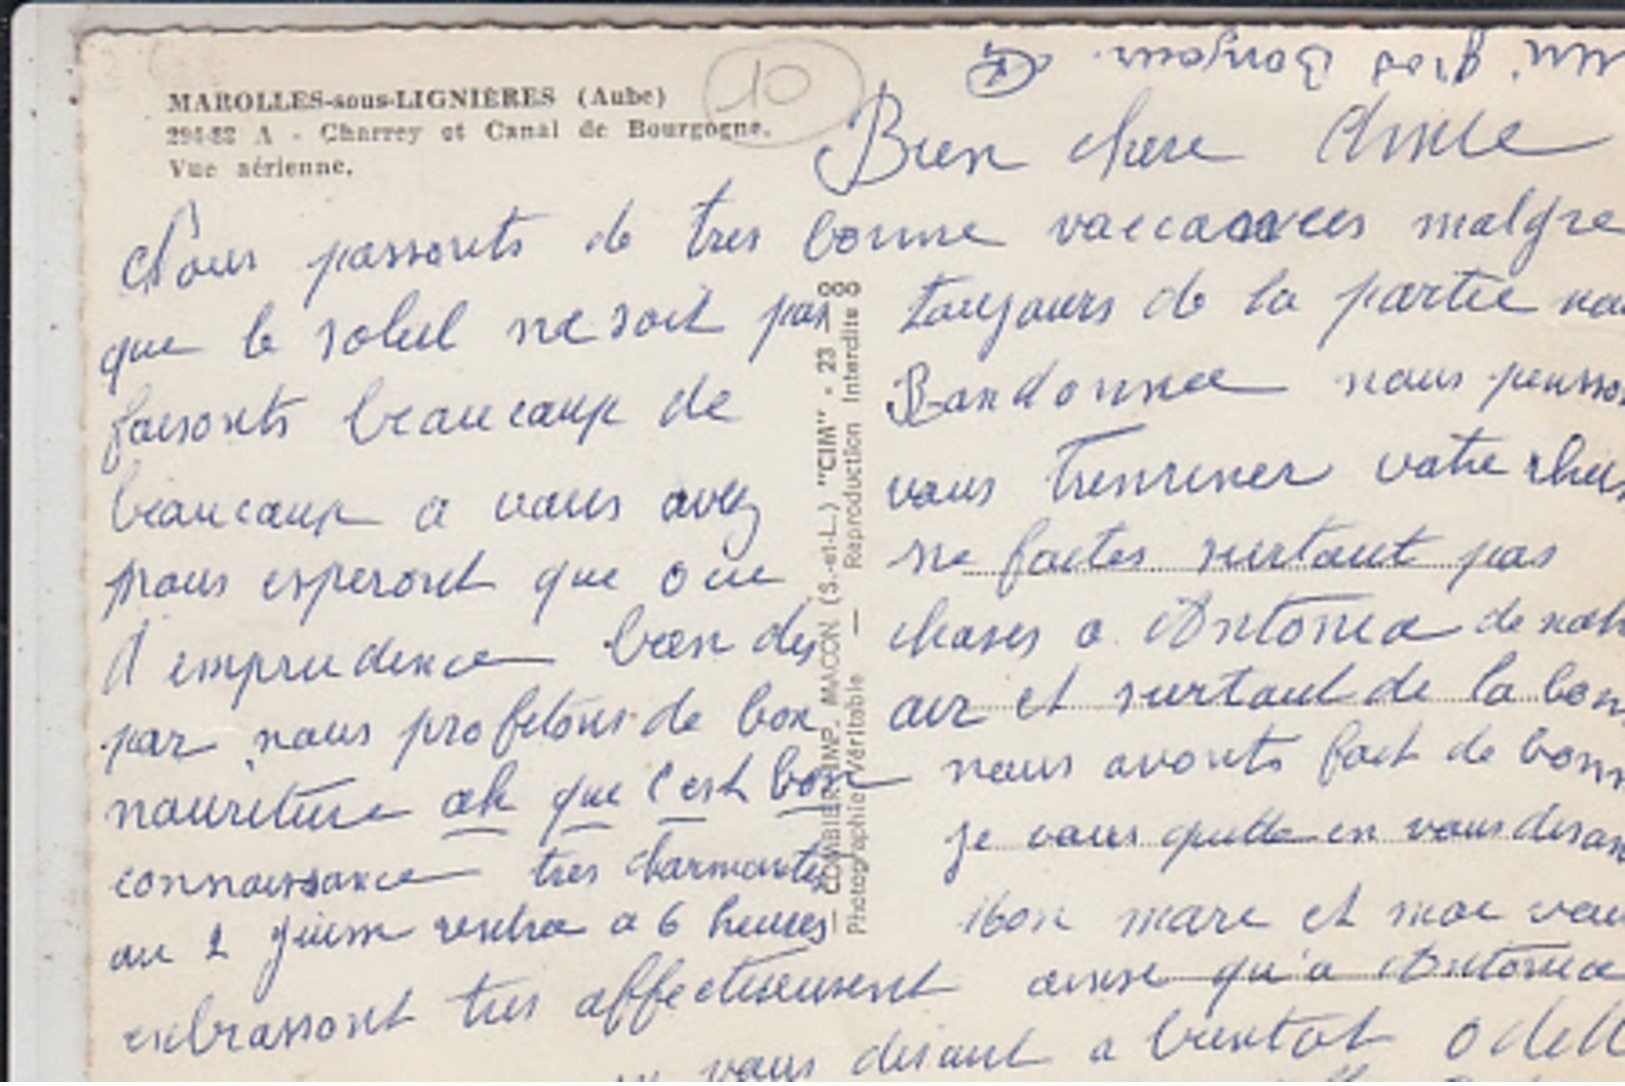 MAROLLES-sous-LIGNIÈRES (Aube)
294-82 A - Charrey et Canal de Bourgogne.
Vue aérienne.
10
un gros Bonjour
Bien chere
Nous passonts de tres bonne vaecances malgre
que le soleil ne soit pas toujours de la partie
faisonts beaucoup de Randonnee nous
beaucoup a vous avez vous votre
nous esperont que oui ne faites surtout pas
d'imprudence bien des choses a Antonia de
par nous profitons de bon air et surtout de la
nouriture ah que c'est bon nous avonts fait de
connaissance tres charmantes je vous quitte en vous
au 2 juin a 6 heures Mon mare et moi
enbrassont tres affectueusement ainsi qu'a Antonia
vous disant a bientot
— COMBIER IMP. MACON (S.-et-L.) "CIM" - 23 — ooo
Photographie Véritable — Reproduction Interdite